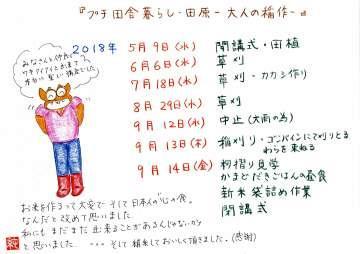 『プチ田舎暮らし・田原ー大人の稲作ー』
みなさんと仲良く
ワキアイアイと出来て
本当に楽しい講座でした
2018年
5月9日(水) 開講式・田植
6月6日(水) 草刈
7月18日(水) 草刈・カカシ作り
8月29日(水) 草刈
9月12日(水) 中止(大雨の為)
9月13日(木) 稲刈り・コンバインにて刈りとる
わらを束ねる
9月14日(金) 籾摺り見学
かまどだきごはんの昼食
新米袋詰め作業
閉講式
お米を作るって大変で そして日本人の心の食。
なんだと改めて思いました
私にもまだまだ出来ることがあるんじゃないか
と思いました .... そして精米しておいしく頂きました。(感謝)